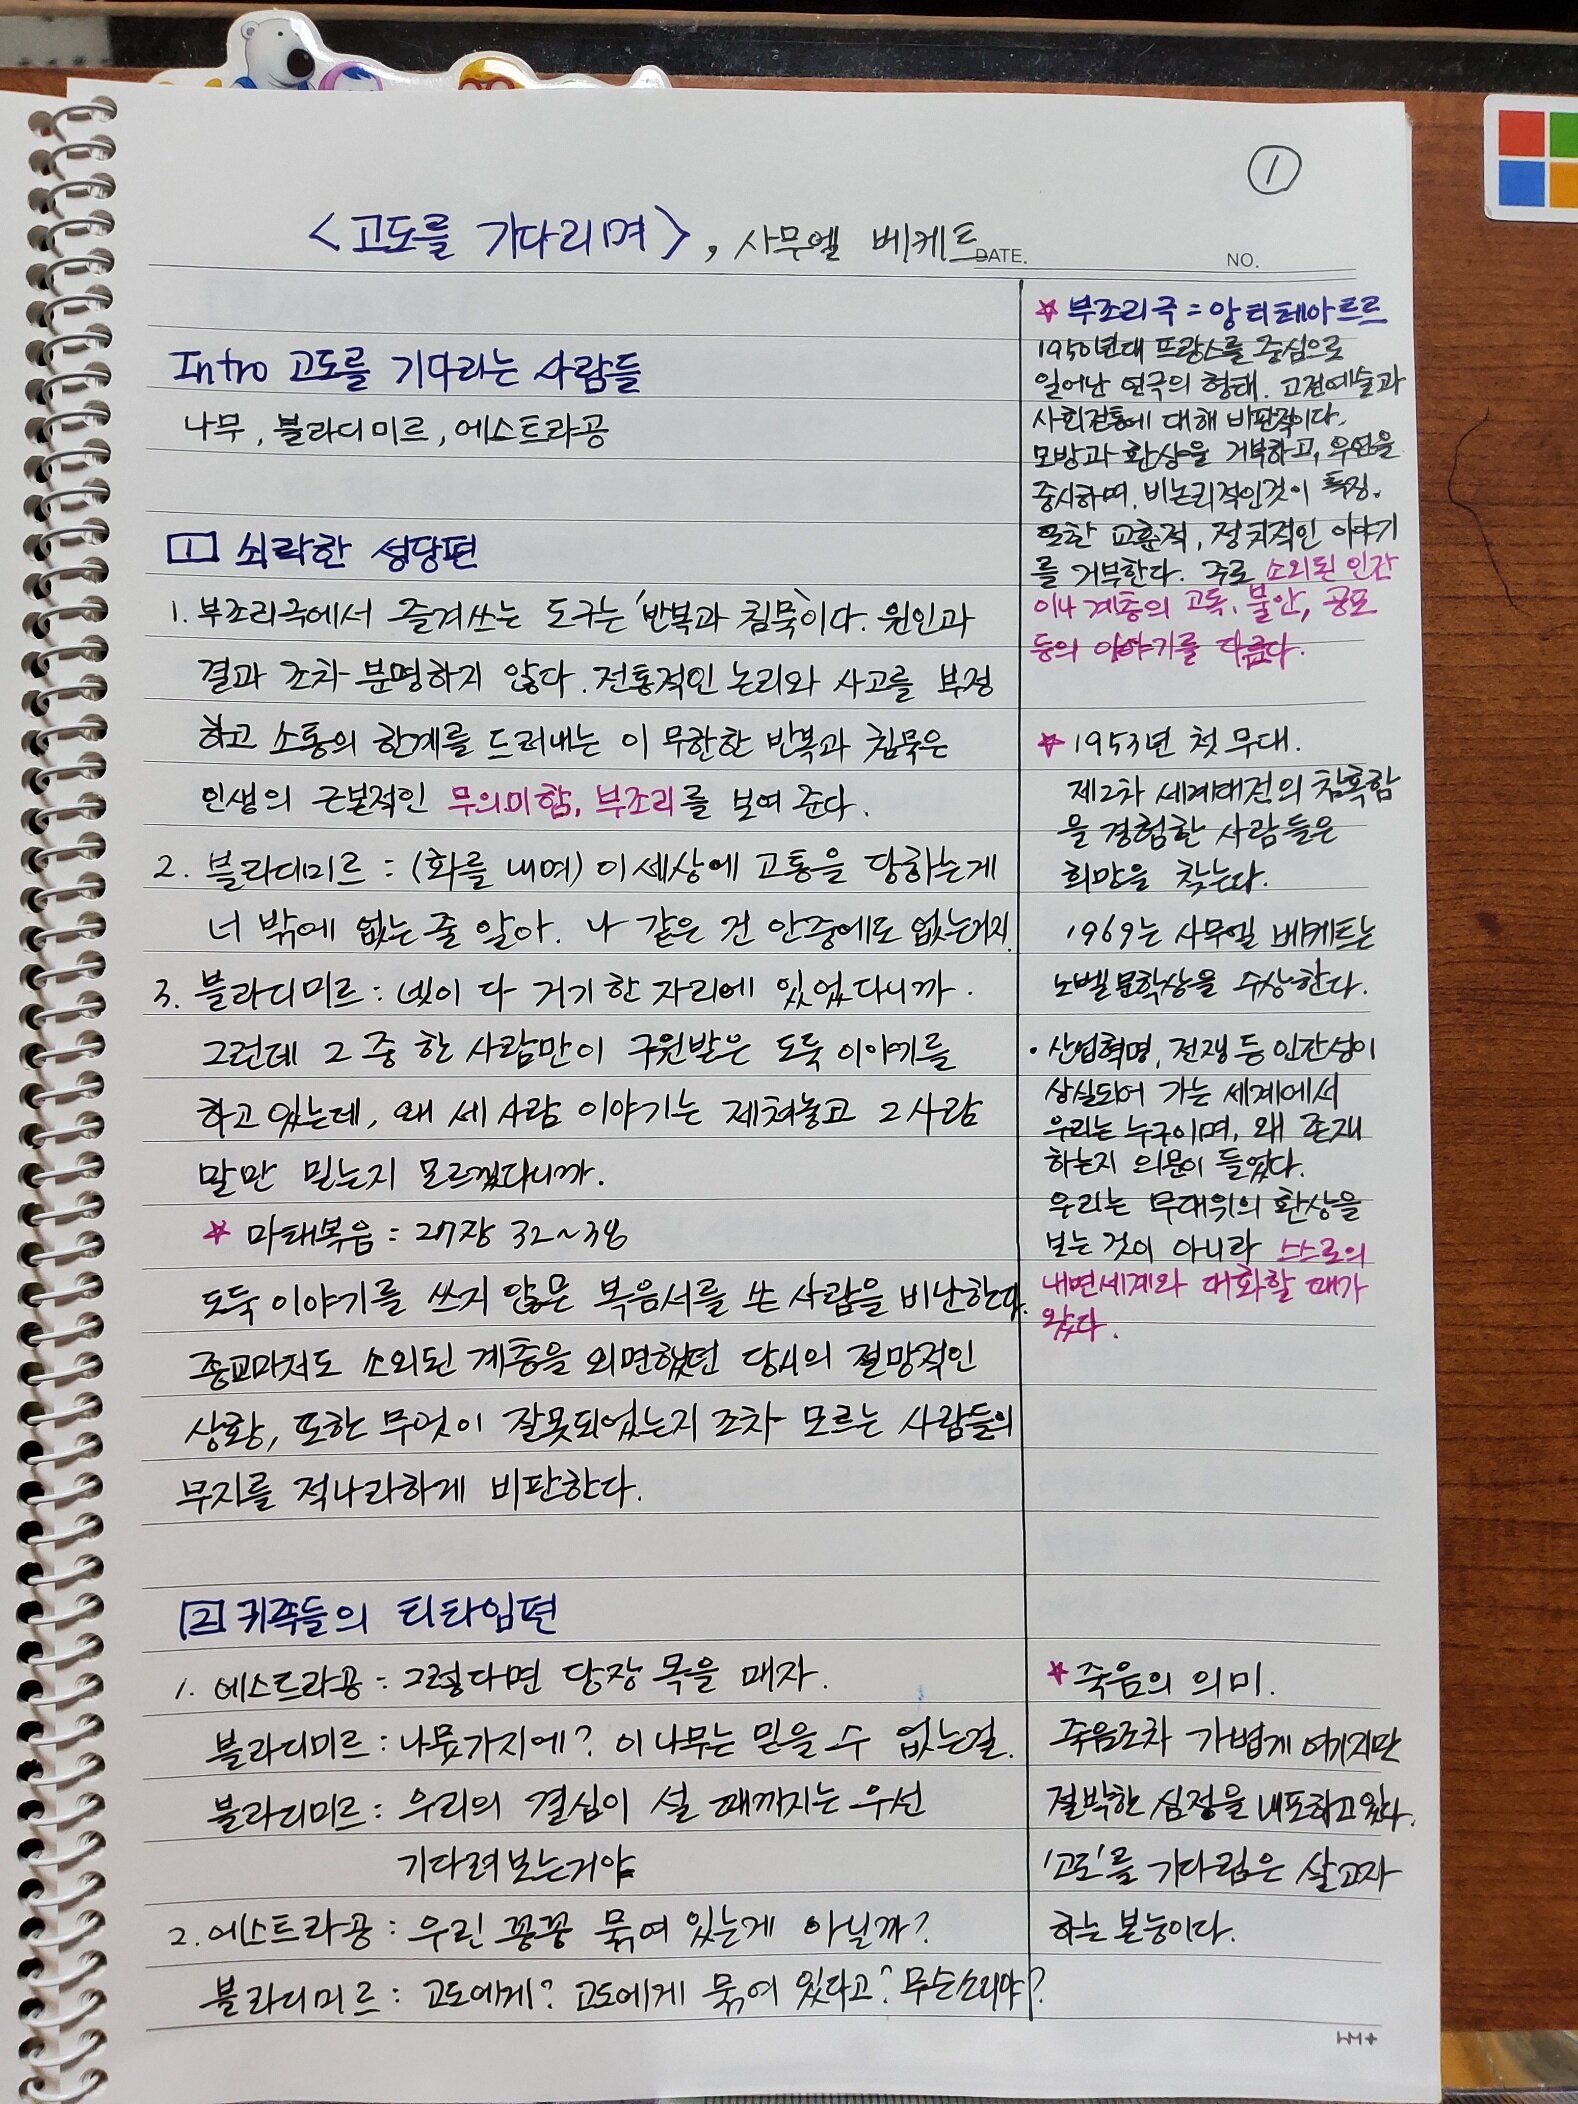 ①
<고도를 기다리며>, 사무엘 베케트
DATE.
NO.
Intro 고도를 기다리는 사람들
나무, 블라디미르, 에스트라공
1 쇠락한 성당편
1. 부조리극에서 즐겨쓰는 도구는 '반복과 침묵'이다. 원인과
결과 조차 분명하지 않다. 전통적인 논리와 사고를 부정
하고 소통의 한계를 드러내는 이 무한한 반복과 침묵은
인생의 근본적인 무의미함, 부조리를 보여 준다.
2. 블라디미르 : (화를 내며) 이 세상에 고통을 당하는게
너 밖에 없는 줄 알아. 나 같은 건 안중에도 없는거지.
3. 블라디미르 : 넷이 다 거기 한 자리에 있었다니까.
그런데 그 중 한 사람만이 구원받은 도둑 이야기를
하고 있는데, 왜 세 사람 이야기는 제쳐놓고 그 사람
말만 믿는지 모르겠다니까.
☆ 마태복음 : 27장 32~38
도둑 이야기를 쓰지 않은 복음서를 쓴 사람을 비난한다.
종교마저도 소외된 계층을 외면했던 당시의 절망적인
상황, 또한 무엇이 잘못되었는지 조차 모르는 사람들의
무지를 적나라하게 비판한다.
2 귀족들의 티타임편
1. 에스트라공 : 그렇다면 당장 목을 매자.
블라디미르 : 나뭇가지에? 이 나무는 믿을 수 없는걸.
블라디미르 : 우리의 결심이 설 때까지는 우선
기다려 보는거야
2. 에스트라공 : 우린 꽁꽁 묶여 있는게 아닐까?
블라디미르 : 고도에게? 고도에게 묶여 있다고? 무슨소리야?
☆ 부조리극 = 앙티테아트르
1950년대 프랑스를 중심으로
일어난 연극의 형태. 고전예술과
사회전통에 대해 비판적이다.
모방과 환상을 거부하고, 우연을
중시하며, 비논리적인것이 특징.
또한 교훈적, 정치적인 이야기
를 거부한다. 주로 소외된 인간
이나 계층의 고독, 불안, 공포
등의 이야기를 다룬다.
☆ 1953년 첫 무대.
제2차 세계대전의 참혹함
을 경험한 사람들은
희망을 찾는다.
1969는 사무엘 베케트는
노벨문학상을 수상한다.
• 산업혁명, 전쟁 등 인간성이
상실되어 가는 세계에서
우리는 누구이며, 왜 존재
하는지 의문이 들었다.
우리는 무대위의 환상을
보는 것이 아니라 스스로의
내면세계와 대화할 때가
왔다.
☆ 죽음의 의미.
죽음조차 가볍게 여기지만
절박한 심정을 내포하고 있다.
'고도'를 기다림은 살고자
하는 본능이다.